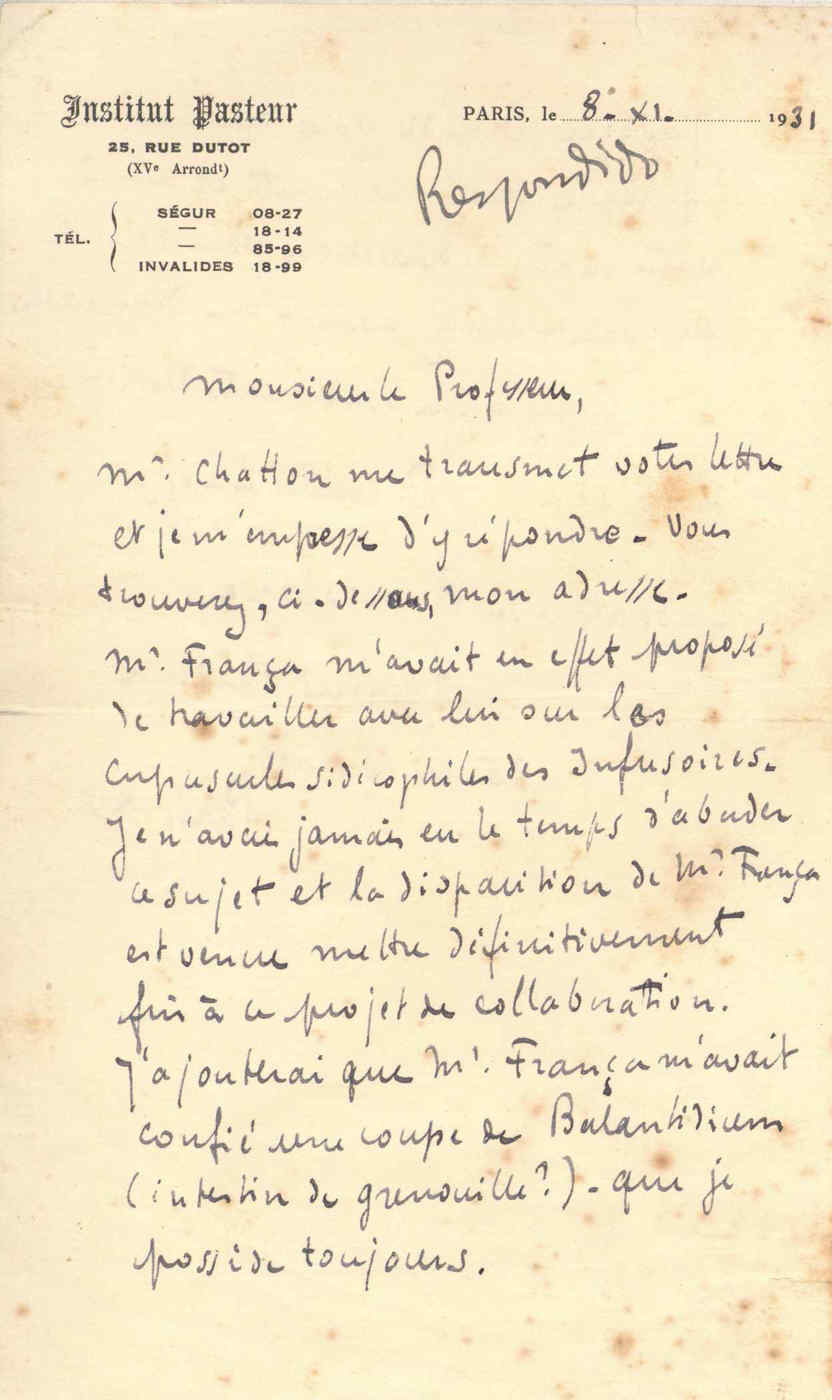 Institut Pasteur
25, RUE DUTOT
(XVe Arrondt)
TÉL.
SÉGUR 08-27
— 18-14
— 85-96
INVALIDES 18-99
PARIS, le 8. XI. 1931
Respondido
Monsieur le Professeur,
Mr. Chatton me transmet votre lettre
et je m'empresse d'y répondre. Vous
trouverez, ci-dessous, mon adresse.
Mr. França m'avait en effet proposé
de travailler avec lui sur les
corpuscules sidérophiles des Infusoires.
Je n'avais jamais eu le temps d'aborder
ce sujet et la disparition de Mr. França
est venue mettre définitivement
fin à ce projet de collaboration.
J'ajouterai que Mr. França m'avait
confié une coupe de Balantidium
(intestin de grenouille?) - que je
possède toujours.